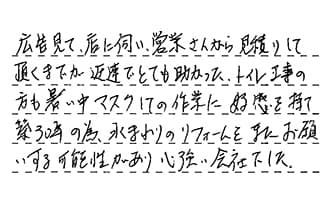 広告見て、店に伺い、営業さんから見積りして
頂くまでが迅速でとても助かった。トイレ工事の
方も暑い中マスクしての作業に好感を持て
築30年の為、水まわりのリフォームを またお願
いする可能性があり心強い会社でした。